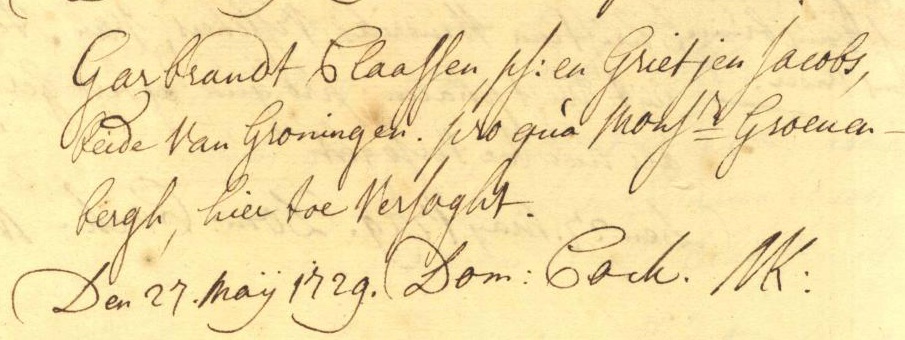 Garbrandt Claassen, ps: en Grietjen Jacobs,
beide van Groningen. pro qua Monsr Groenen-
bergh, hier toe versoght.
Den 27. Maÿ 1729. Dom: Cock. NK: